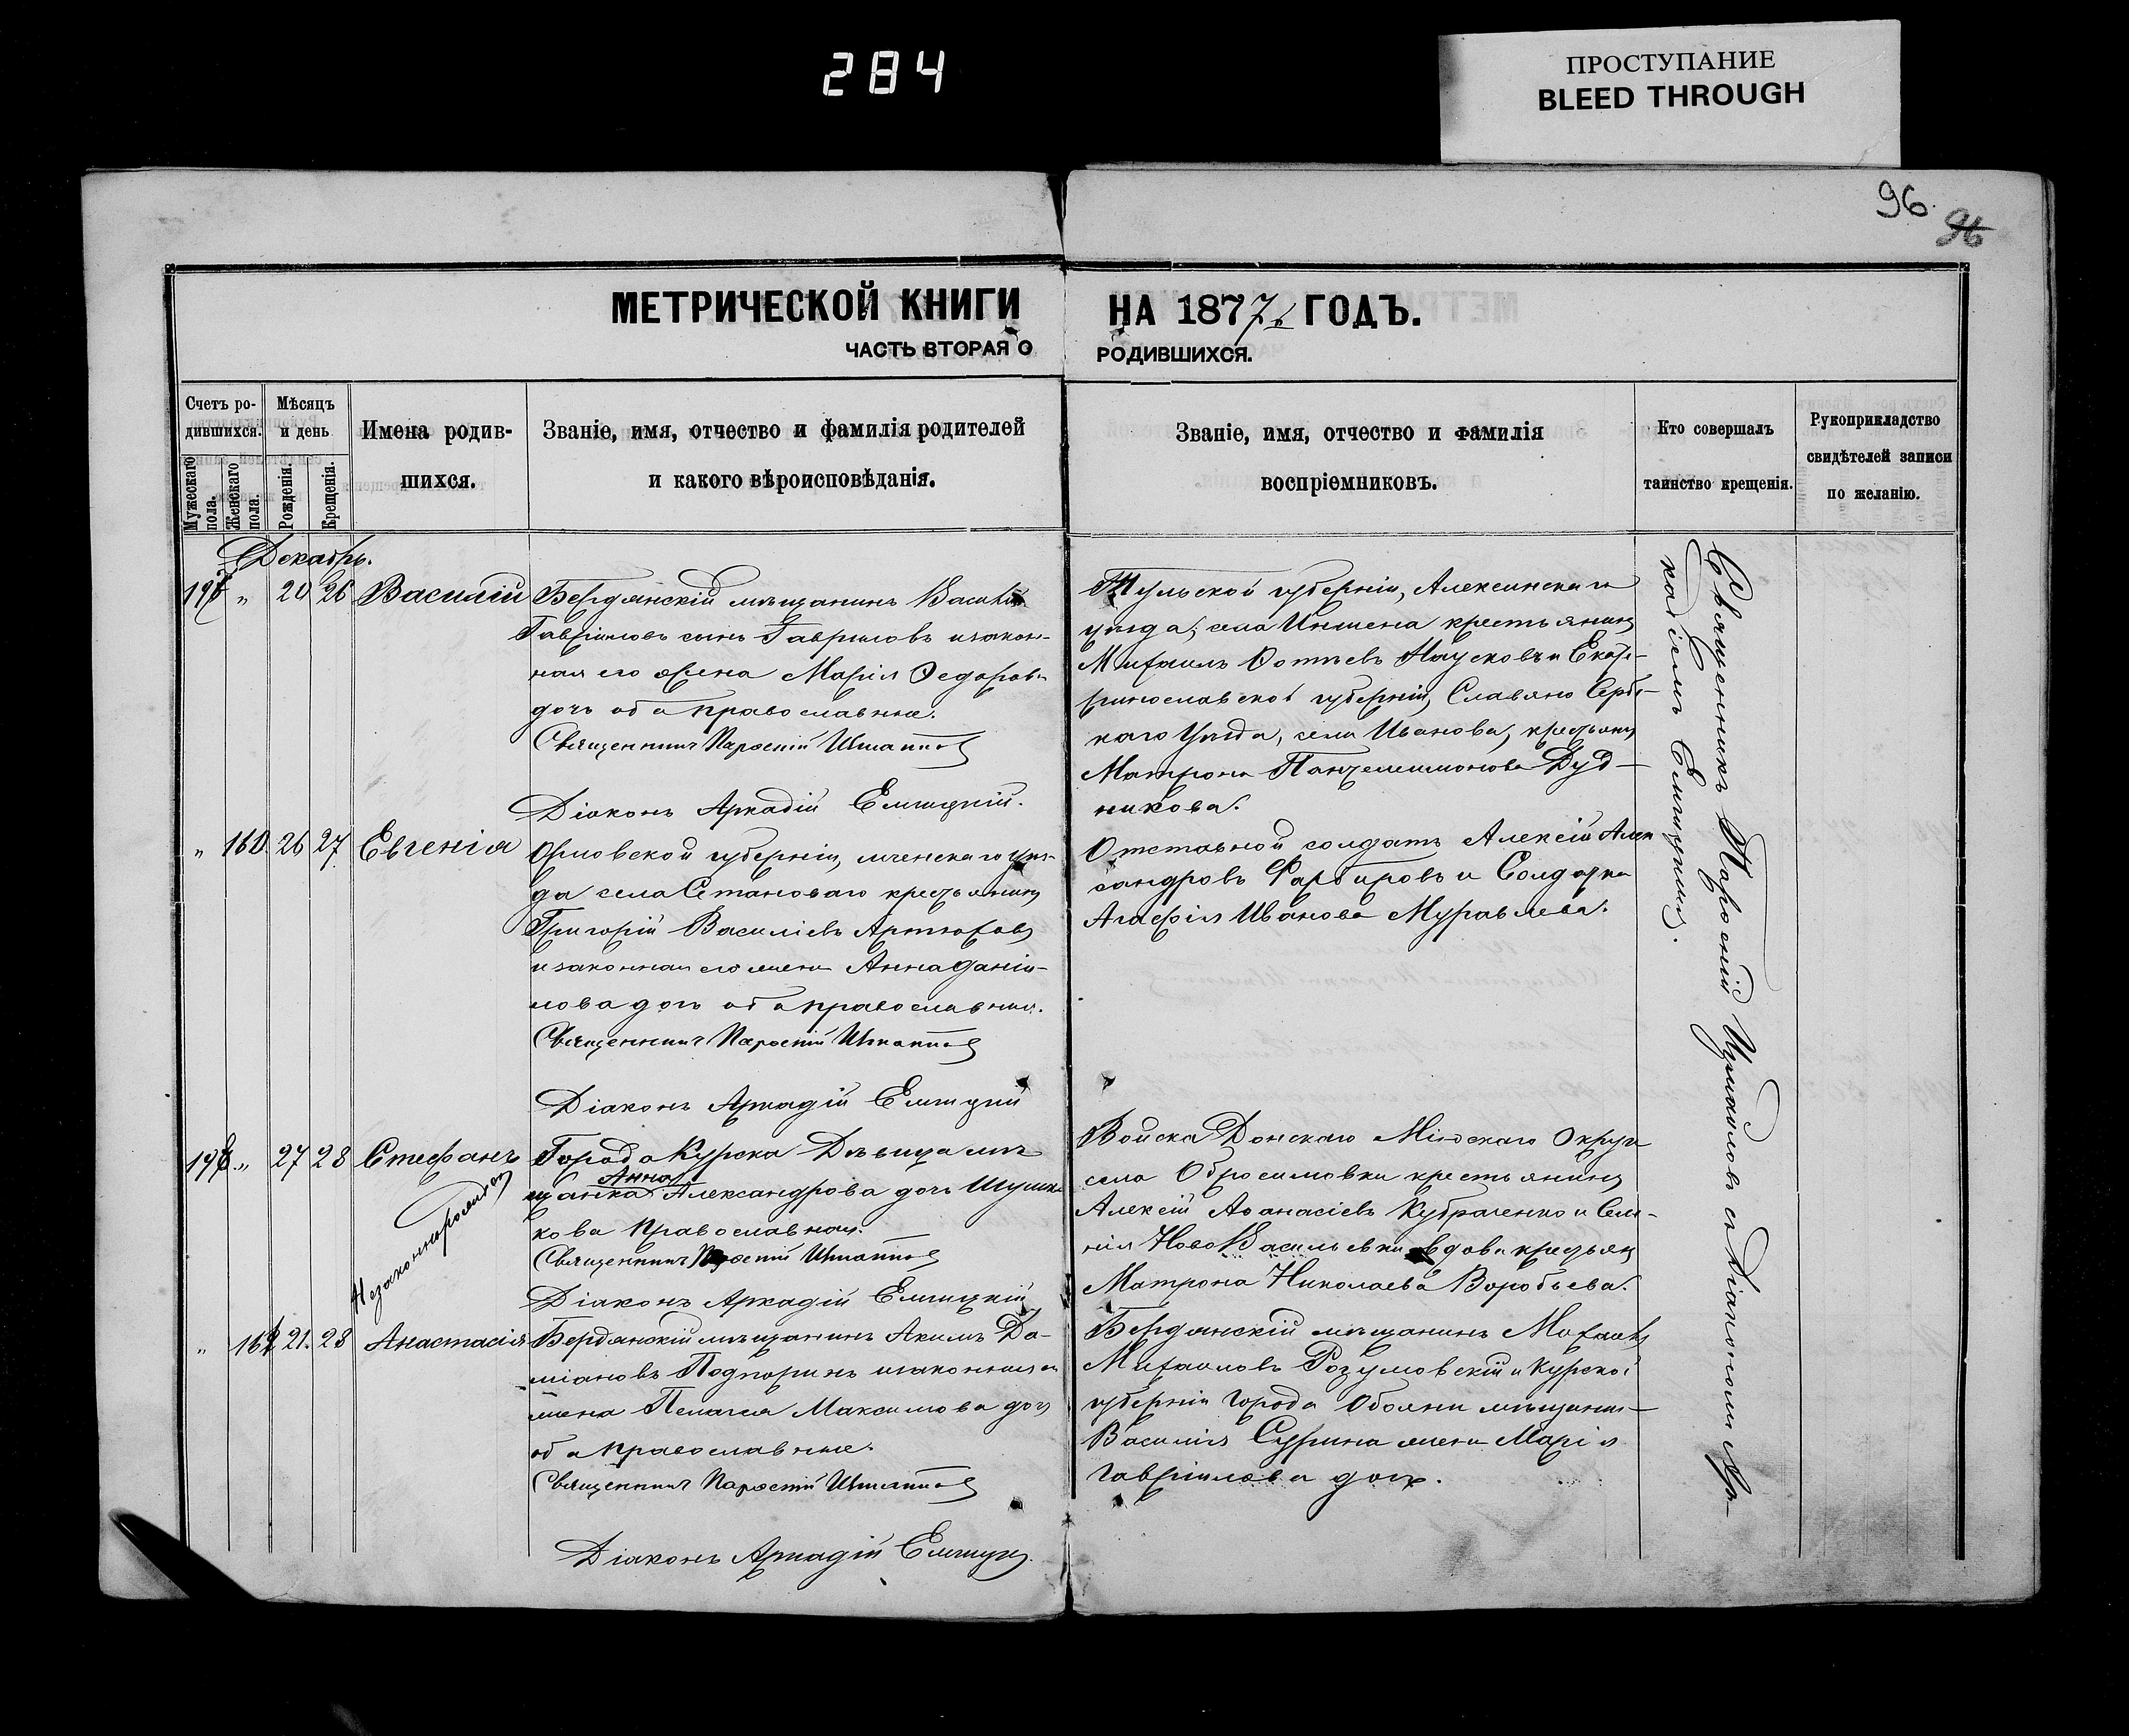 284
ПРОСТУПАНИЕ
BLEED THROUGH
96.
96
МЕТРИЧЕСКОЙ КНИГИ НА 1877 ГОДЪ.
ЧАСТЬ ВТОРАЯ О РОДИВШИХСЯ.
Счетъ ро-
дившихся.
Мужескаго пола.
Женскаго пола.
Мѣсяцъ
и день
Рожденія.
Крещенія.
Имена родив-
шихся.
Званіе, имя, отчество и фамилія родителей
и какого вѣроисповѣданія.
Званіе, имя, отчество и фамилія
воспріемниковъ.
Кто совершалъ
таинство крещенія.
Рукоприкладство
свидѣтелей записи
по желанію.
Декабрь.
197 " 20 26 Василій
Бердянскій мѣщанинъ Василій
Гавріиловъ сынъ Гавриловъ и закон-
ная его жена Марія Ѳедорова
дочь оба православные.
Священникъ
Діаконъ Аркадій
Тульской губерніи, Алексинскаго
уѣзда, села крестьянинъ
Михаилъ Фотіевъ и Екате-
ринославской губерніи, Славяно Серб-
скаго Уѣзда, села Иванова, крестьянка
Матрона Пантелеимонова Дуд-
никова.
" 160. 26 27 Евгенія
Орловской губерніи, мценскаго уѣз-
да села Становаго крестьянинъ
Григорій Василіевъ Артюховъ
и законная его жена Анна Даніи-
лова дочь оба православные.
Священникъ
Діаконъ Аркадій
Отставной солдатъ Алексій Алек
сандровъ и Солдатка
Агафія Иванова Муравлева.
198. " 27 28 Стефанъ
Незаконнорожден
Города Курска Дѣвица мѣ
Анна
щанка Александрова дочь
кова православная.
Священникъ
Діаконъ Аркадій
Войска Донскаго Міюскаго Округа
села крестьянинъ
Алексій Аѳанасіевъ и Селе-
нія НовоВасильевки вдова крестьян
Матрона Николаева Воробьева.
" 161 21. 28 Анастасія
Бердянскій мѣщанинъ Акимъ Да-
міановъ и законная ег
жена Пелагея Максимова дочь
оба православные.
Священникъ
Діаконъ Аркадій
Бердянскій мѣщанинъ
Михаиловъ Розумовскій и Курской
губерніи Города Обояни мѣщанина
Василія жена Марія
Гавріилова дочь.
Священникъ съ Діакономъ Ар-
кадіемъ